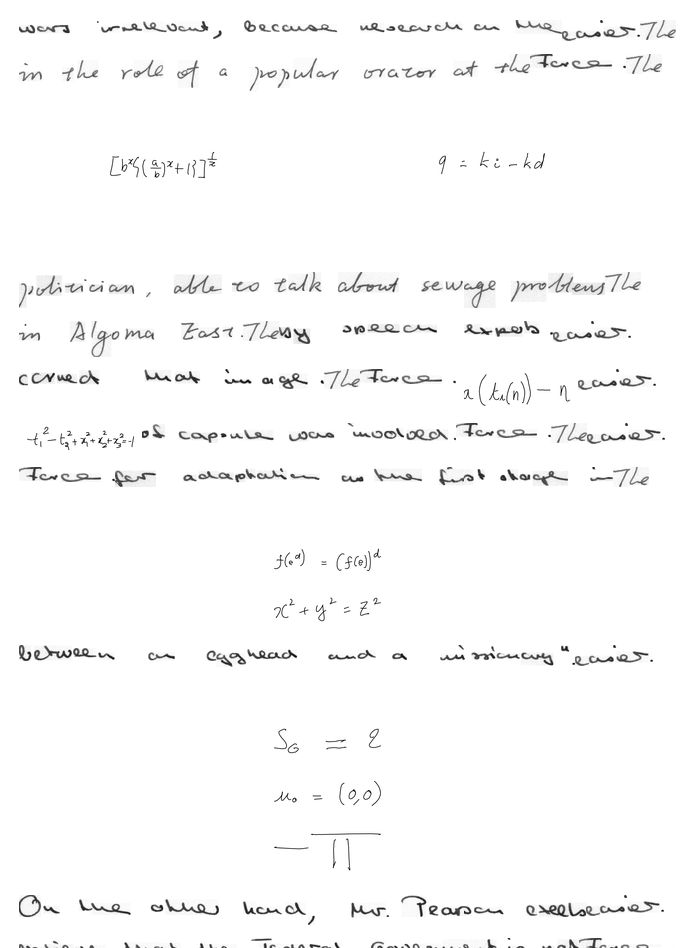 was irrelevant, because research on the easier. The
in the role of a popular orator at the Farce. The
[b^x{(a/b)^x+1}]^{1/x}    q = ki - kd
politician, able to talk about sewage problems The
in Algoma East. The by speech expects easier.
carved that image. The Farce. x(t_1(n)) - η easier.
-t_1^2-t_2^2+x_1^2+x_2^2+x_3^2=-1 of capsule was involved. Farce. The easier.
Farce for adaptation as the first stage in The
f(e^d) = (f(e))^d
x^2 + y^2 = z^2
between an egghead and a missionary" easier.
S_G = 2
μ_0 = (0,0)
On the other hand, Mr. Pearson easier.
that the Federal Government is not Farce